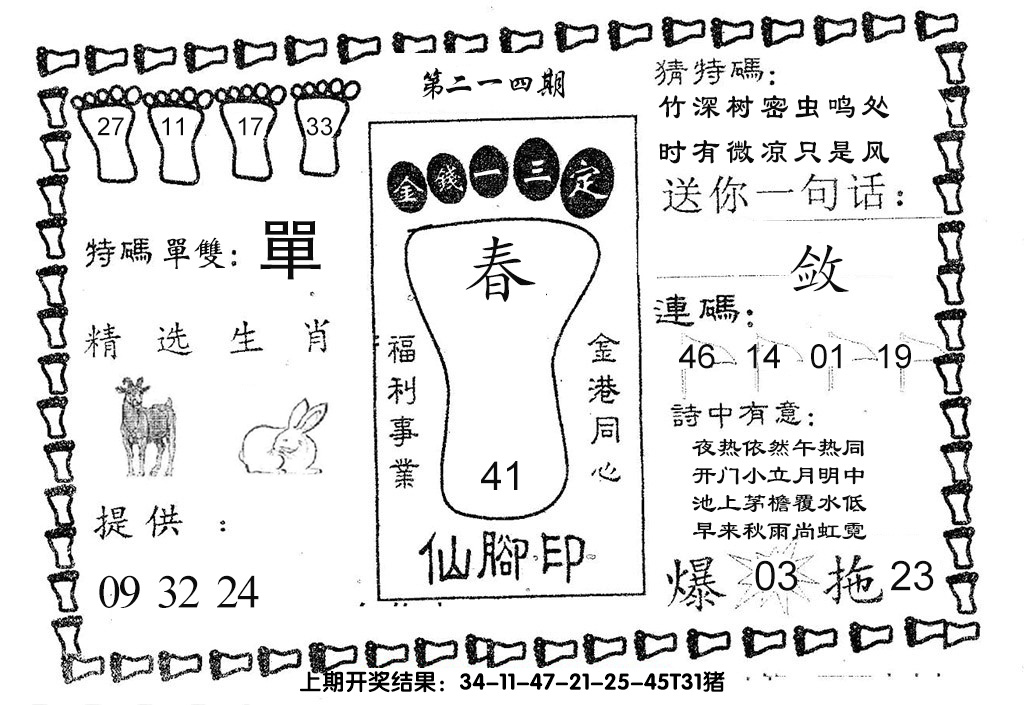 第二一四期
27 11 17 33
特碼單雙: 單
精选生肖
提供：
09 32 24
金錢一三定
春
福利事業
金港同心
41
仙腳印
猜特碼:
竹深树密虫鸣处
时有微凉只是风
送你一句话:
敛
連碼:
46 14 01 19
詩中有意:
夜热依然午热同
开门小立月明中
池上茅檐覆水低
早来秋雨尚虹霓
爆 03 拖 23
上期开奖结果：34-11-47-21-25-45T31猪